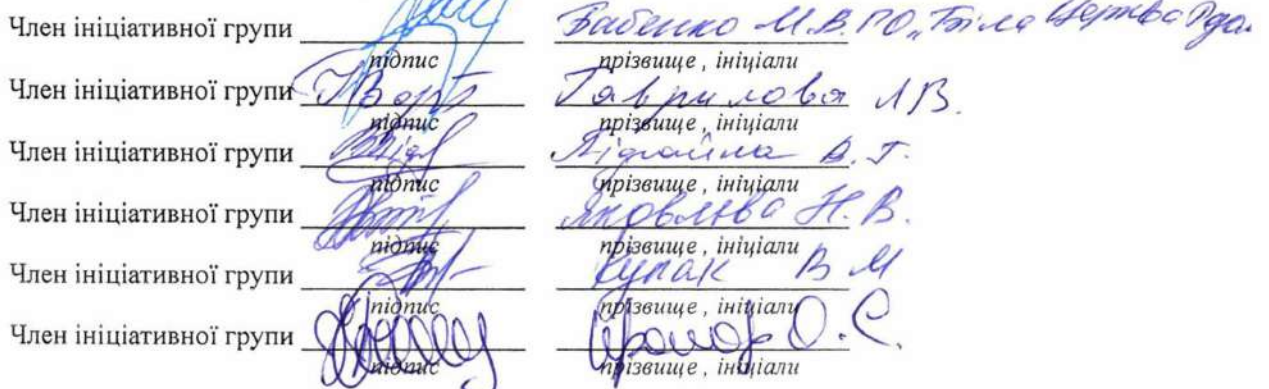 Член ініціативної групи Бабенко М.В. ГО „Біла Церква
підпис прізвище, ініціали
Член ініціативної групи Гаврилова Л.В.
підпис прізвище, ініціали
Член ініціативної групи В. Г.
підпис прізвище, ініціали
Член ініціативної групи Яковлєва Н.В.
підпис прізвище, ініціали
Член ініціативної групи В М
підпис прізвище, ініціали
Член ініціативної групи О.С.
підпис прізвище, ініціали